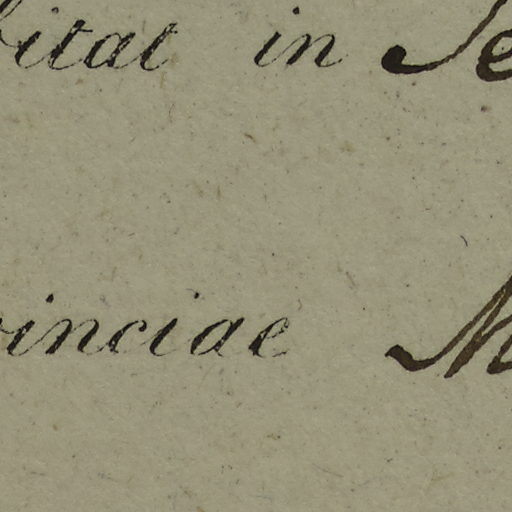 bitat in Se
vinciae M